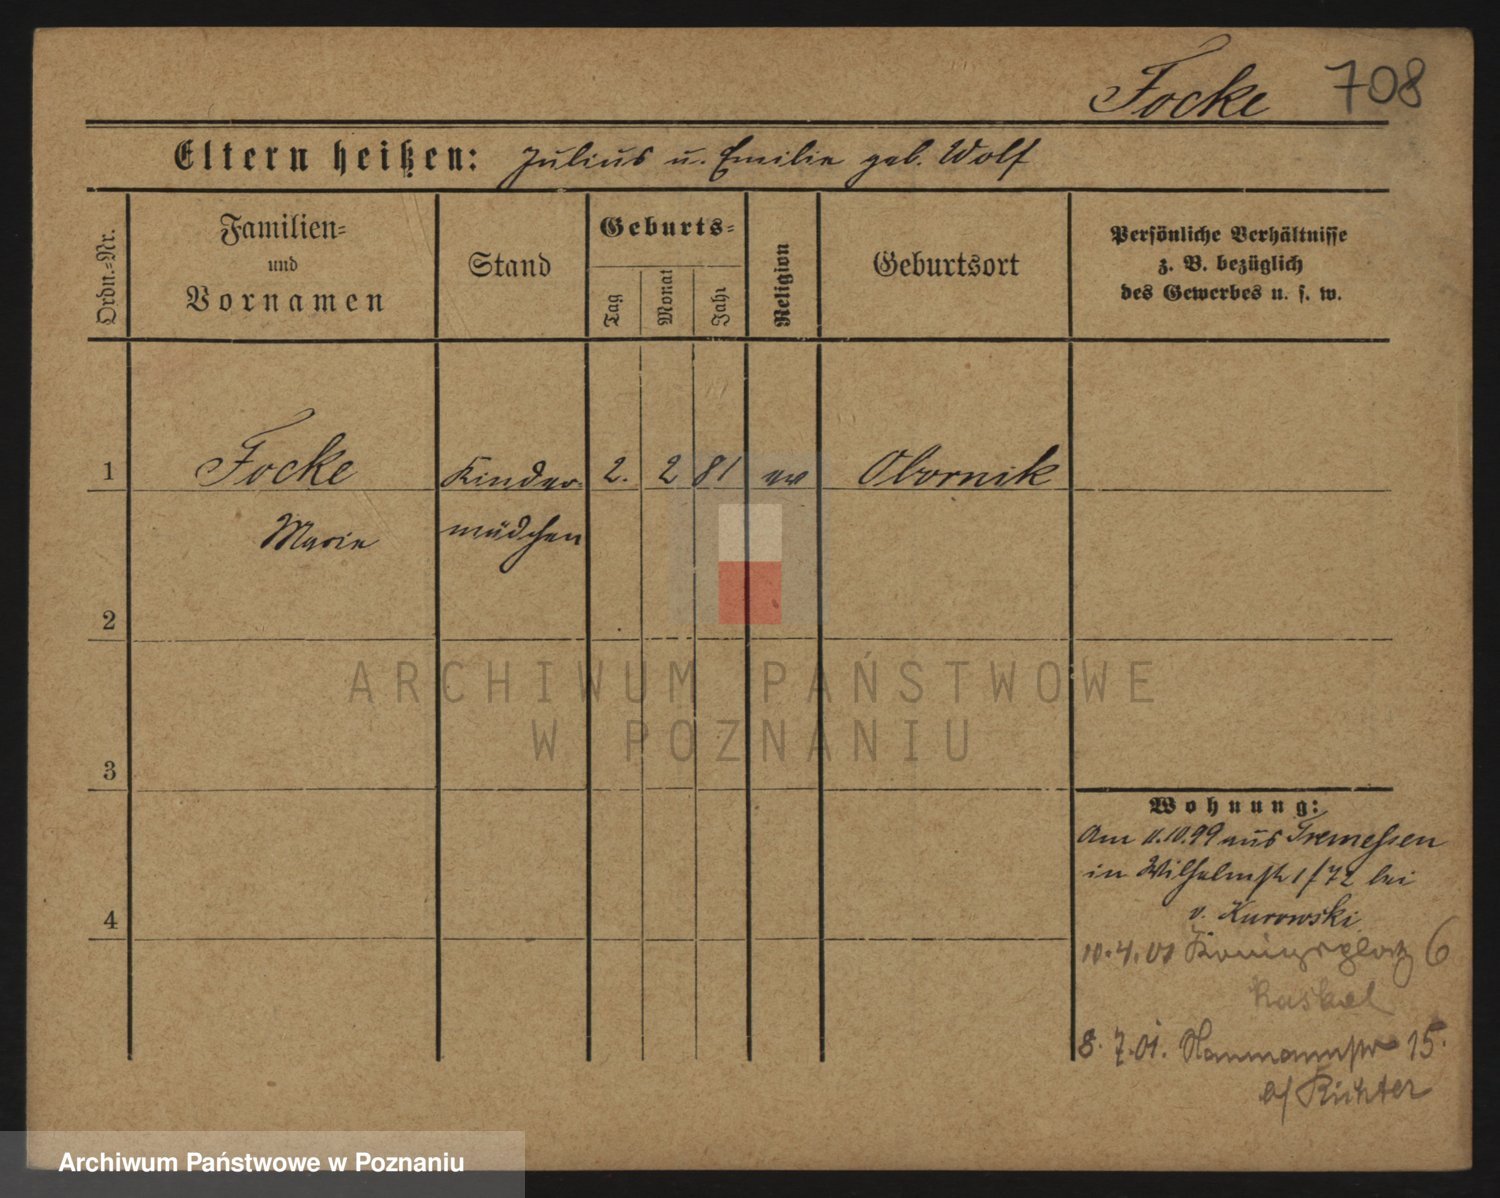 Focke 708
Eltern heißen: Julius u. Emilie geb. Wolf
Ordn.=Nr.
Familien=
und
Vornamen
Stand
Geburts=
Tag
Monat
Jahr
Religion
Geburtsort
Persönliche Verhältnisse
z. B. bezüglich
des Gewerbes u. s. w.
1 Focke Kinder- 2. 2 81 ev Obornik
Marie mädchen
2
3
4
Wohnung:
Am 11.10.99 aus Tremessen
in Wilhelmstr 1/72 bei
v. Kurowski
10.4.01 Königsplatz 6
8.7.01. Naumannstr 15.
b/ Richter
ARCHIWUM PAŃSTWOWE
W POZNANIU
Archiwum Państwowe w Poznaniu